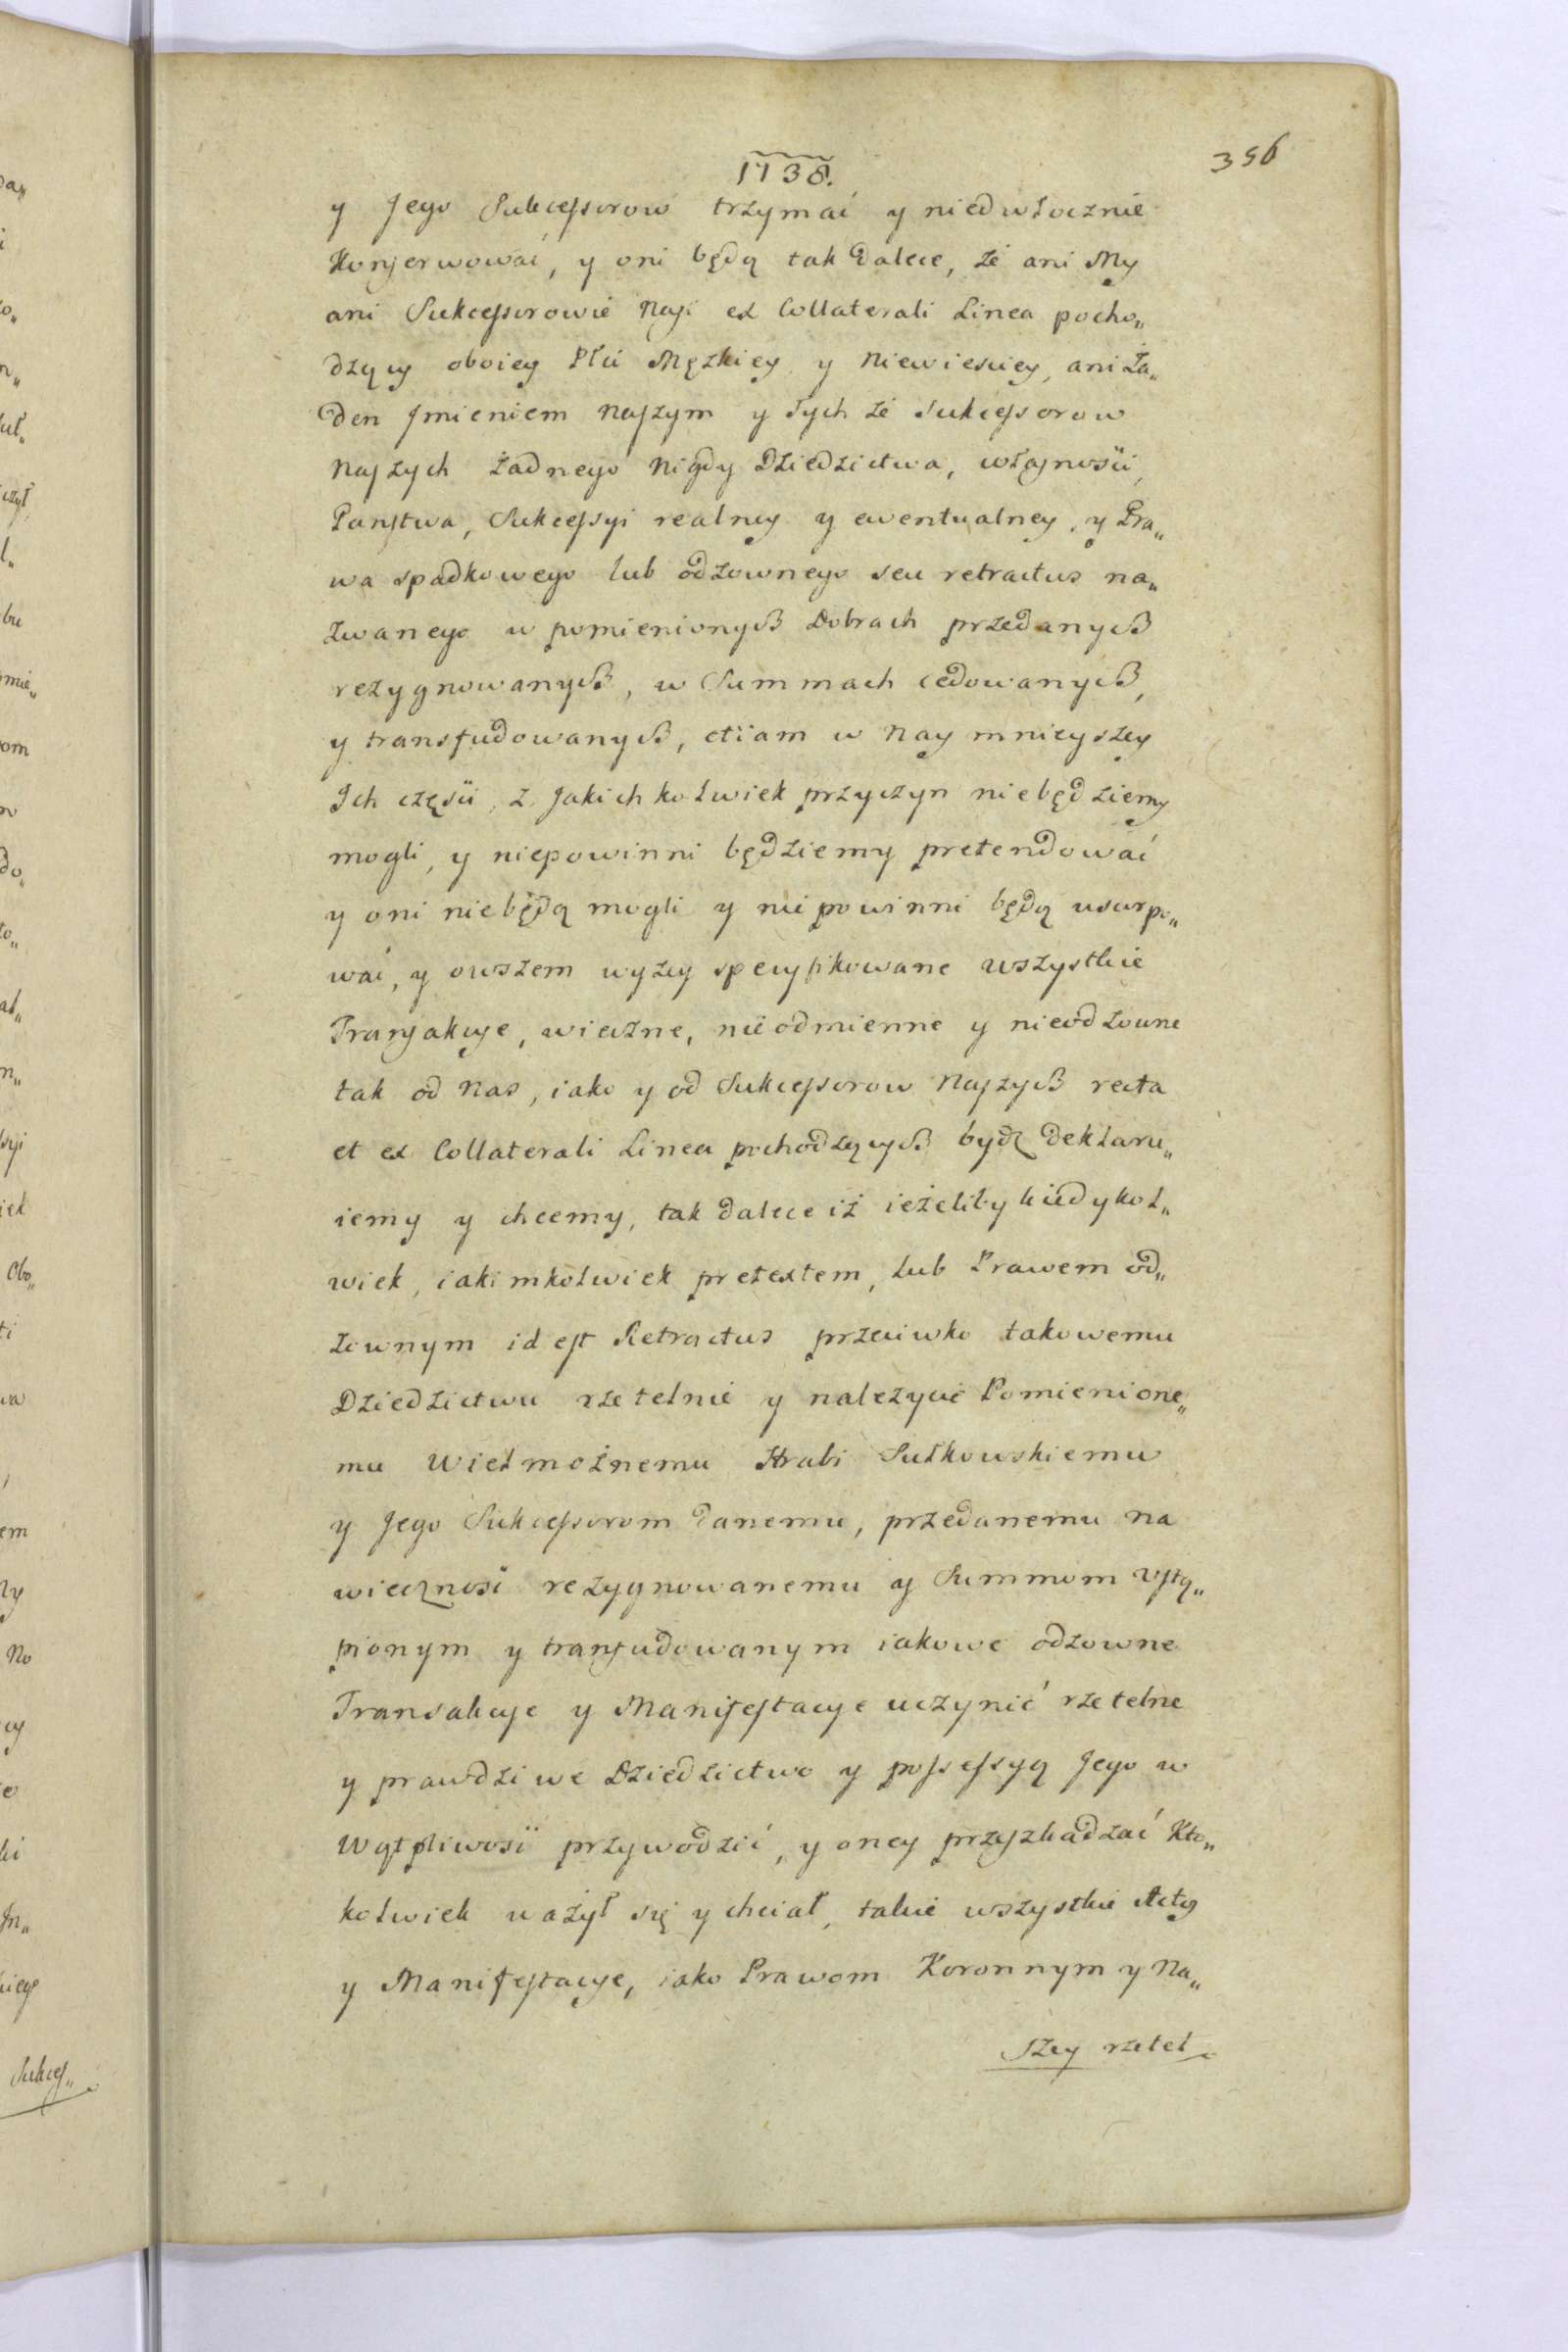 1738.
356
y Jego Sukcessorow trzymać y niedwłocznie
Konserwować, y oni będą tak dalece, że ani My
ani Sukcessorowie Nasi ex Collaterali Linea pocho„
dzący oboiey Płci Męzkiey y Niewiesciey, ani Ża„
den Jmieniem Naszym y tych że Sukcessorow
Naszych żadnego Nigdy Dziedzictwa, własności,
Państwa, Sukcessyi realney y ewentualney, y Pra„
wa spadkowego lub odzownego seu retractus na„
zwanego w pomienionych Dobrach przedanych
rezygnowanych, w Summach cedowanych,
y transfudowanych, etiam w Nay mnieyszey
Ich części, z Jakichkolwiek przyczyn niebędziemy
mogli, y niepowinni będziemy pretendować
y oni niebędą mogli y nie powinni będą usurpo„
wać, y owszem wyżey specyfikowane wszystkie
Transakcye, wieczne, nieodmienne y nieodzowne
tak od Nas, iako y od Sukcessorow Naszych recta
et ex Collaterali Linea pochodzących bydź deklaru„
iemy y chcemy, tak dalece iż ieżeliby kiedykol„
wiek, iakimkolwiek pretextem, lub Prawem od„
zownym id est Retractus przeciwko takowemu
Dziedzictwu rzetelnie y należycie Pomienione„
mu Wielmożnemu Hrabi Sułkowskiemu
y Jego Sukcessorom danemu, przedanemu na
wieczność rezygnowanemu y Summom Ustą„
pionym y transfudowanym iakowe odzowne
Transakcye y Manifestacye uczynić rzetelne
y prawdziwe Dziedzictwo y possessyą Jego w
Wątpliwość przywodzić, y oney przyszkadzać Kto„
kolwiek ważył się y chciał, takie wszystkie Akty
y Manifestacye, iako Prawom Koronnym y Na„
szey rzetel